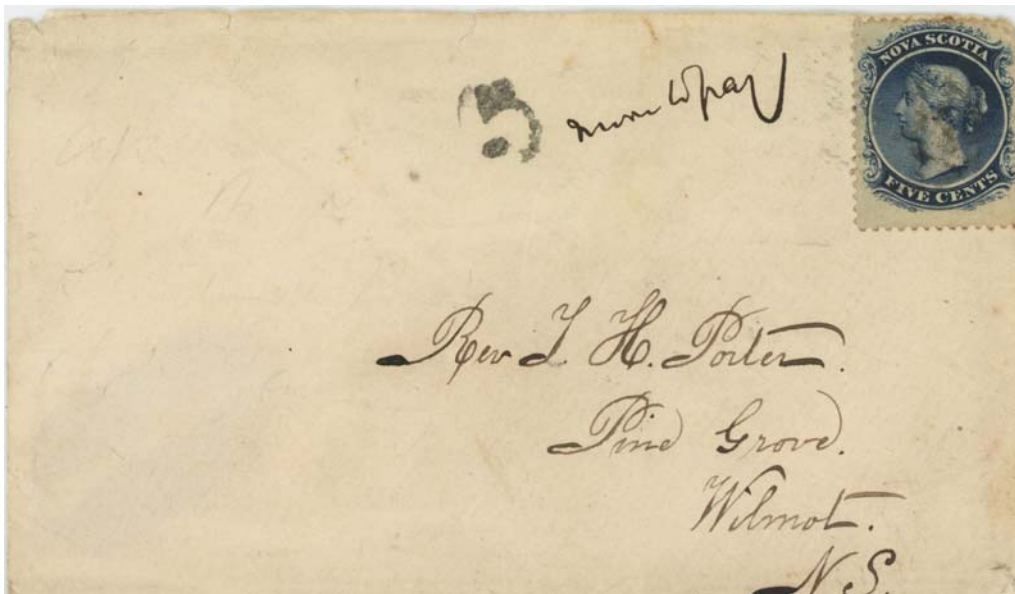 NOVA SCOTIA
FIVE CENTS
5 more to pay
Rev I. H. Porter.
Pine Grove.
Wilmot.
N.S.